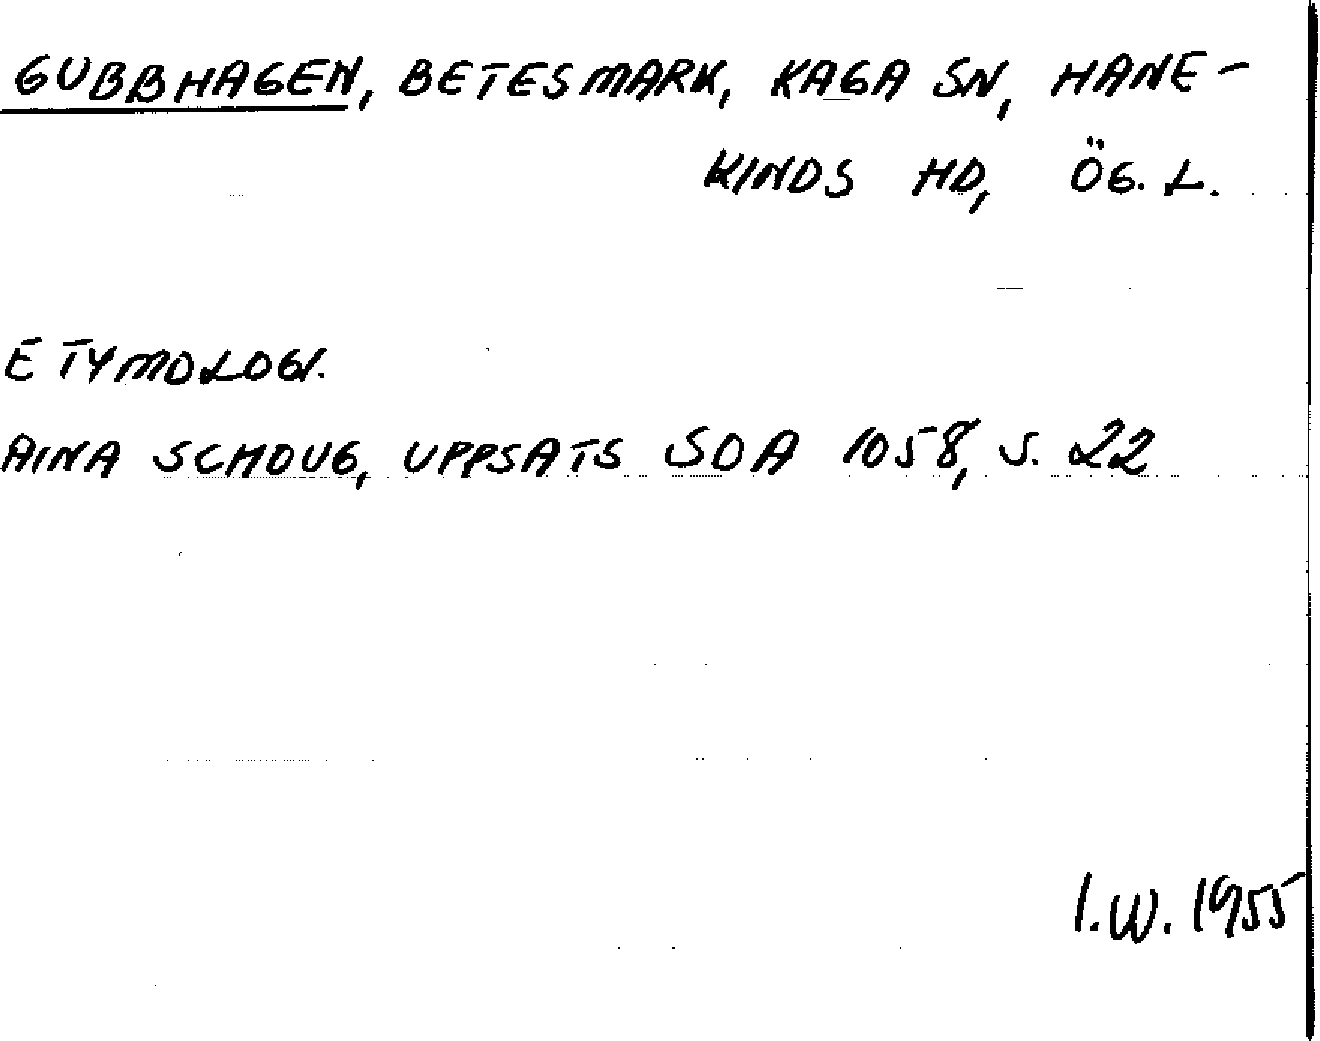 GUBBHAGEN, BETESMARK, KAGA SN, HANE-
KINDS HD, ÖG. L.
ETYMOLOGI.
AINA SCHOUG, UPPSATS SOA 1058, S. 22
I.W. 1955